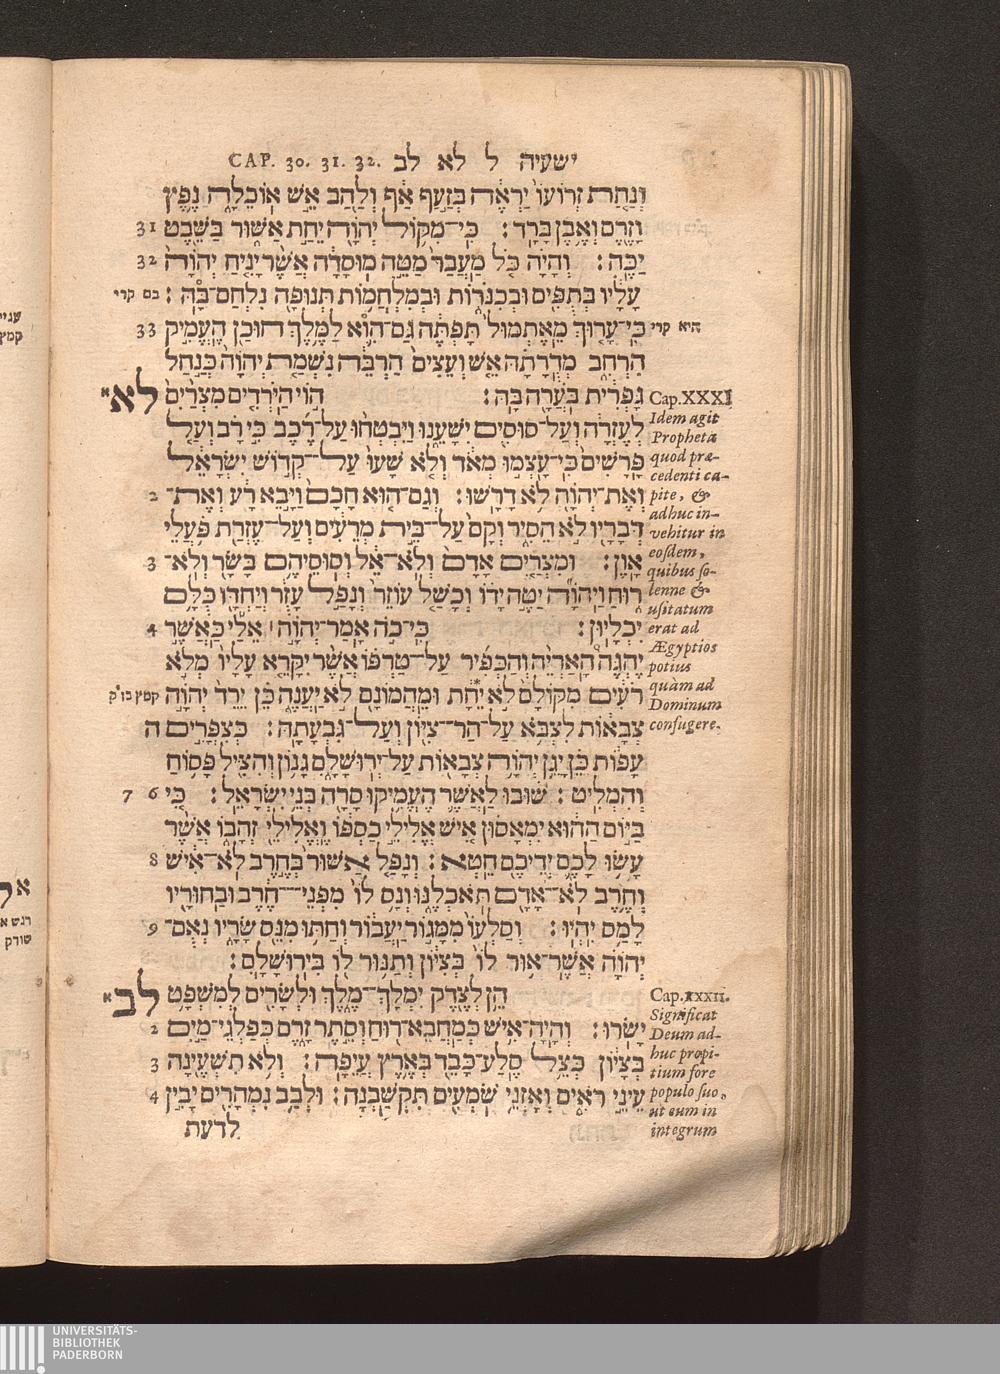 ישעיה ל לא לב CAP. 30. 31. 32.
וְנַחַת זְרוֹעוֹ יַרְאֶה בְּזַעַף אַף וְלַהַב אֵשׁ אוֹכֵלָה נֶפֶץ
וָזֶרֶם וְאֶבֶן בָּרָד׃ כִּי־מִקּוֹל יְהוָה יֵחַת אַשּׁוּר בַּשֵּׁבֶט 31
יַכֶּה׃ וְהָיָה כֹּל מַעֲבַר מַטֵּה מוּסָדָה אֲשֶׁר יָנִיחַ יְהוָה 32
עָלָיו בְּתֻפִּים וּבְכִנֹּרוֹת וּבְמִלְחֲמוֹת תְּנוּפָה נִלְחַם־בָּהּ׃ בם קרי
היא קרי כִּי־עָרוּךְ מֵאֶתְמוּל תָּפְתֶּה גַּם־הִוא לַמֶּלֶךְ הוּכַן הֶעְמִיק 33
הִרְחִב מְדֻרָתָהּ אֵשׁ וְעֵצִים הַרְבֵּה נִשְׁמַת יְהוָה כְּנַחַל
Cap. XXXI גָּפְרִית בֹּעֲרָה בָּהּ׃ הוֹי הַיֹּרְדִים מִצְרַיִם לא א
Idem agit לְעֶזְרָה וְעַל־סוּסִים יִשָּׁעֵנוּ וַיִּבְטְחוּ עַל־רֶכֶב כִּי רָב וְעַל
Propheta
quod præ- פָּרָשִׁים כִּי־עָצְמוּ מְאֹד וְלֹא שָׁעוּ עַל־קְדוֹשׁ יִשְׂרָאֵל
cedenti ca-
pite, & וְאֶת־יְהוָה לֹא דָרָשׁוּ׃ וְגַם־הוּא חָכָם וַיָּבֵא רָע וְאֶת־ 2
adhuc in-
vehitur in דְּבָרָיו לֹא הֵסִיר וְקָם עַל־בֵּית מְרֵעִים וְעַל־עֶזְרַת פֹּעֲלֵי
eosdem, אָוֶן׃ וּמִצְרַיִם אָדָם וְלֹא־אֵל וְסוּסֵיהֶם בָּשָׂר וְלֹא־ 3
quibus so-
lenne & רוּחַ וַיהוָה יַטֶּה יָדוֹ וְכָשַׁל עוֹזֵר וְנָפַל עָזֻר וְיַחְדָּו כֻּלָּם
usitatum
erat ad יִכְלָיוּן׃ כִּי־כֹה אָמַר־יְהוָה׀ אֵלַי כַּאֲשֶׁר 4
Ægyptios
potius יֶהְגֶּה הָאַרְיֵה וְהַכְּפִיר עַל־טַרְפּוֹ אֲשֶׁר יִקָּרֵא עָלָיו מְלֹא
quàm ad רֹעִים מִקּוֹלָם לֹא יֵחָת וּמֵהֲמוֹנָם לֹא יַעֲנֶה כֵּן יֵרֵד יְהוָה
Dominum
confugere. צְבָאוֹת לִצְבֹּא עַל־הַר־צִיּוֹן וְעַל־גִּבְעָתָהּ׃ כְּצִפֳּרִים ה
עָפוֹת כֵּן יָגֵן יְהוָה צְבָאוֹת עַל־יְרוּשָׁלִָם גָּנוֹן וְהִצִּיל פָּסוֹחַ
וְהִמְלִיט׃ שׁוּבוּ לַאֲשֶׁר הֶעְמִיקוּ סָרָה בְּנֵי יִשְׂרָאֵל׃ כִּי 6 7
בַּיּוֹם הַהוּא יִמְאָסוּן אִישׁ אֱלִילֵי כַסְפּוֹ וֶאֱלִילֵי זְהָבוֹ אֲשֶׁר
עָשׂוּ לָכֶם יְדֵיכֶם חֵטְא׃ וְנָפַל אַשּׁוּר בְּחֶרֶב לֹא־אִישׁ 8
וְחֶרֶב לֹא־אָדָם תֹּאכְלֶנּוּ וְנָס לוֹ מִפְּנֵי־חֶרֶב וּבַחוּרָיו
לָמַס יִהְיוּ׃ וְסַלְעוֹ מִמָּגוֹר יַעֲבוֹר וְחַתּוּ מִנֵּס שָׂרָיו נְאֻם־ 9
יְהוָה אֲשֶׁר־אוּר לוֹ בְּצִיּוֹן וְתַנּוּר לוֹ בִּירוּשָׁלִָם׃
Cap. XXXII. הֵן לְצֶדֶק יִמְלָךְ־מֶלֶךְ וּלְשָׂרִים לְמִשְׁפָּט לב א
Significat
Deum ad- יָשֹׂרוּ׃ וְהָיָה־אִישׁ כְּמַחֲבֵא־רוּחַ וְסֵתֶר זָרֶם כְּפַלְגֵי־מַיִם 2
huc propi-
tium fore בְּצָיוֹן כְּצֵל סֶלַע־כָּבֵד בְּאֶרֶץ עֲיֵפָה׃ וְלֹא תִשְׁעֶינָה 3
populo suo,
ut eum in עֵינֵי רֹאִים וְאָזְנֵי שֹׁמְעִים תִּקְשַׁבְנָה׃ וּלְבַב נִמְהָרִים יָבִין 4
integrum לדעת
UNIVERSITÄTS-
BIBLIOTHEK
PADERBORN